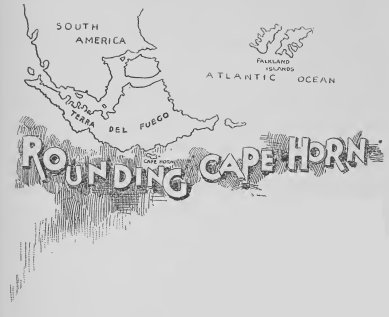 SOUTH
AMERICA
FALKLAND
ISLANDS
ATLANTIC OCEAN
TERRA
DEL FUEGO
CAPE HORN
ROUNDING CAPE HORN